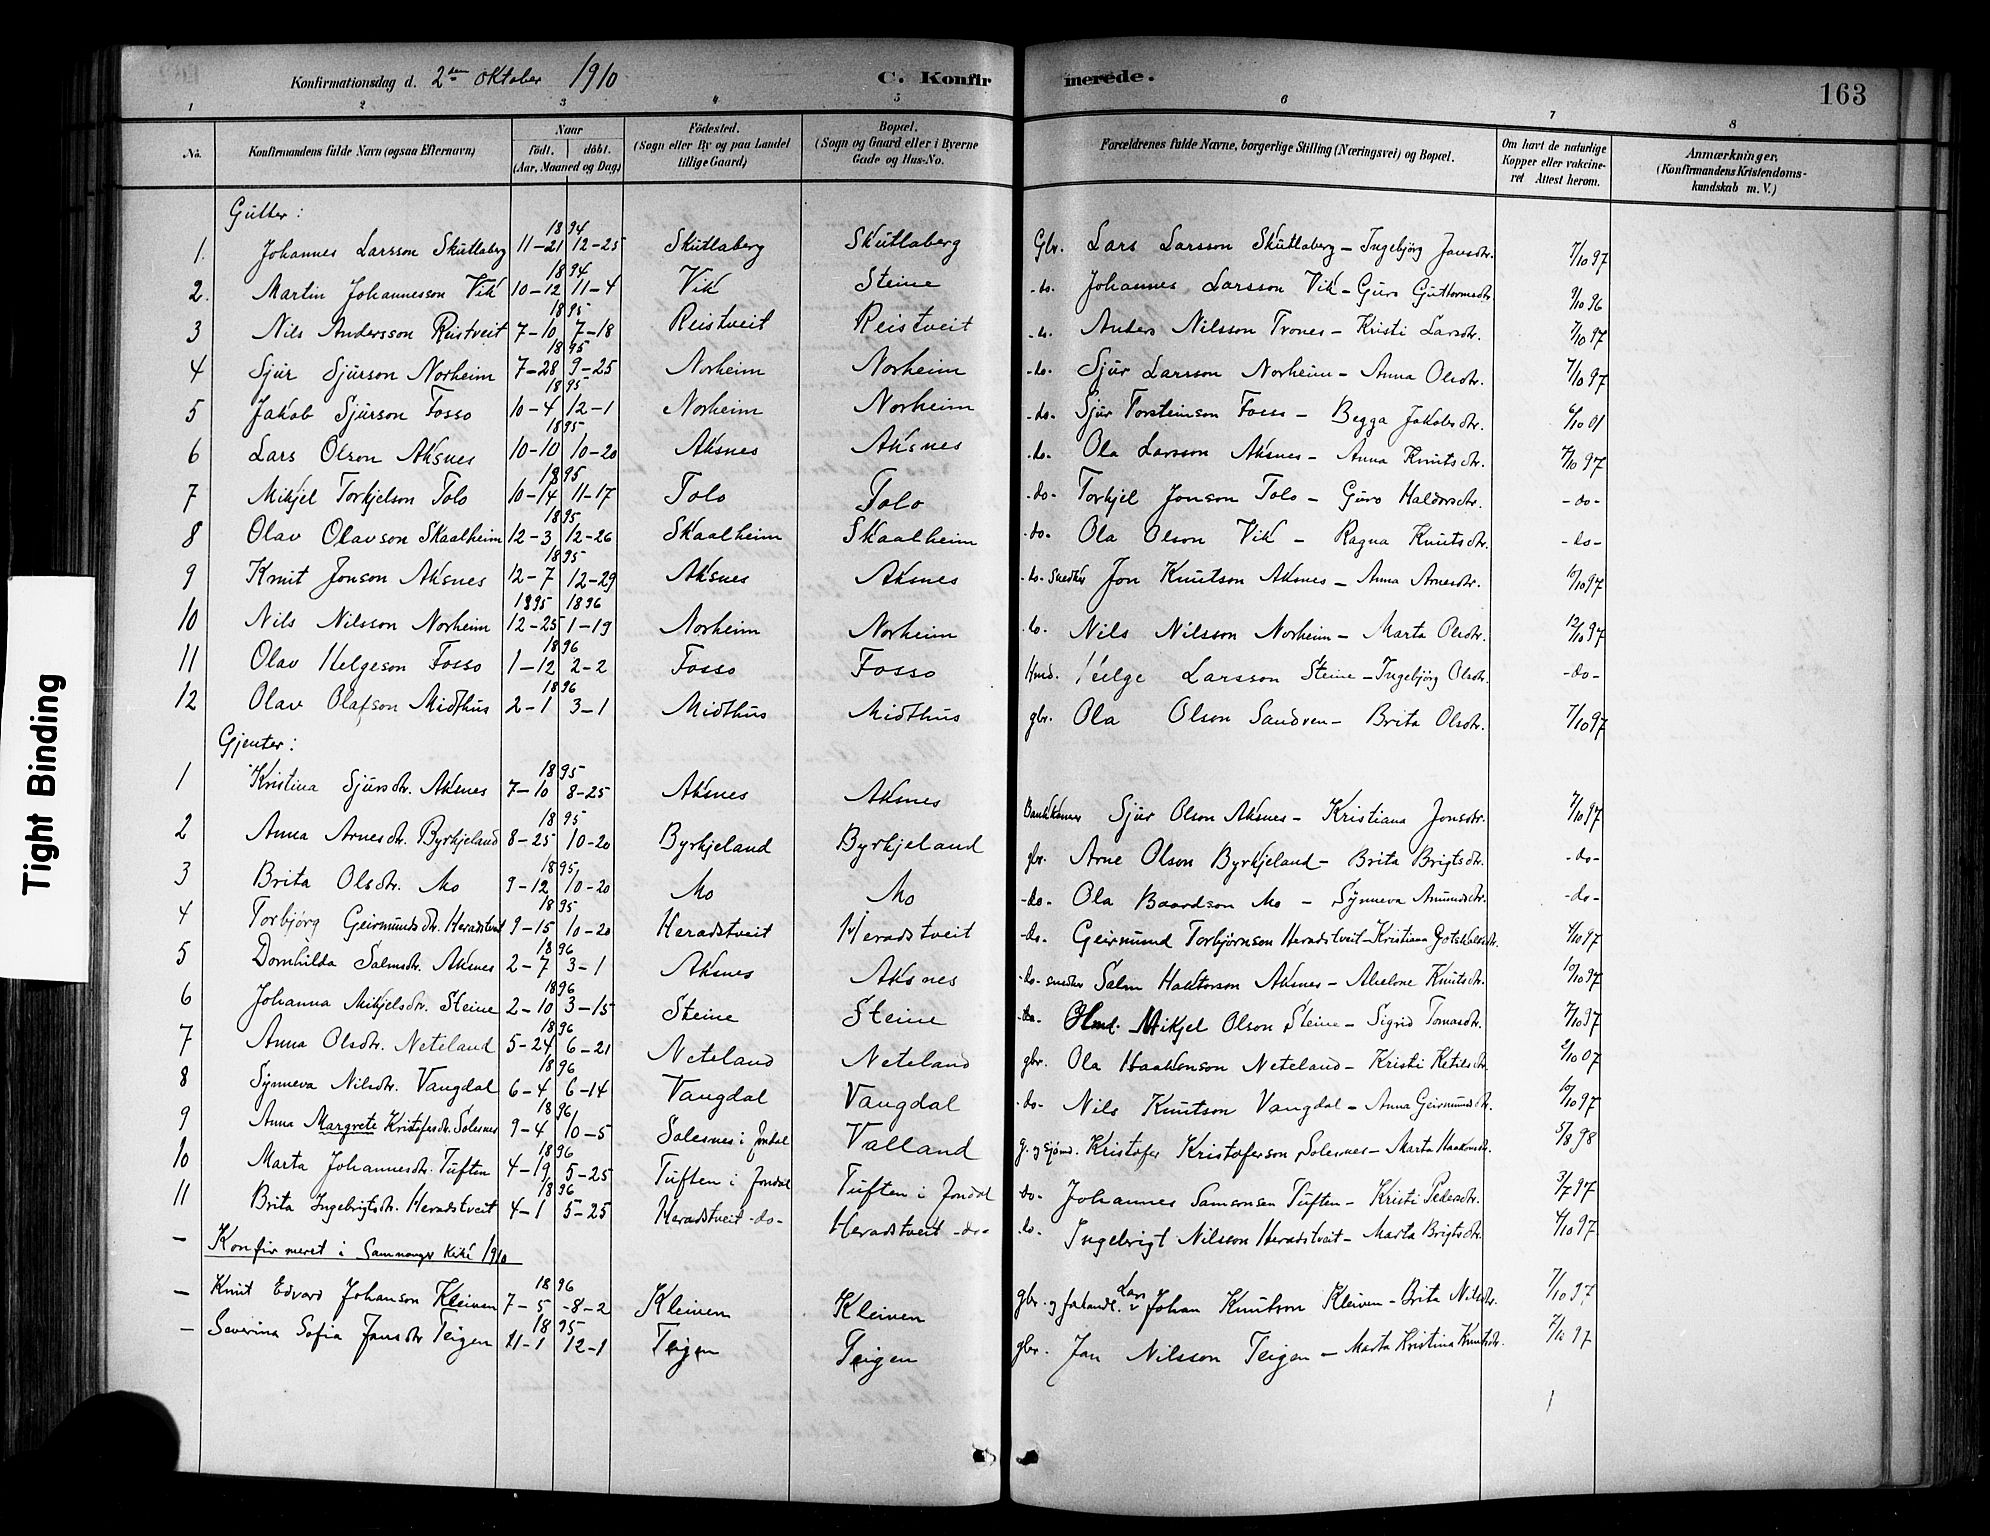 Konfirmationsdag d. 2den Oktober 1910 C. Konfirmerede. 163
1 2 3 4 5 6 7 8
No. Konfirmandens fulde Navn (ogsaa Efternavn) Naar födt. döbt. (Aar, Maaned og Dag) Födested. (Sogn eller By og paa Landet tillige Gaard) Bopæl. (Sogn og Gaard eller i Byerne Gade og Hus-No. Forældrenes fulde Navne, borgerlige Stilling (Næringsvei) og Bopæl. Om havt de naturlige Kopper eller vakcineret Attest herom. Anmærkninger, (Konfirmandens Kristendomskundskab m. V.)
Gutter:
1. Johannes Larsson Skutlaberg 1894 11-21 12-25 Skutlaberg Skutlaberg Gbr. Lars Larsson Skutlaberg - Ingebjørg Jonsdtr. 7/10 97
2. Martin Johannesson Vik 1894 10-12 11-4 Vik Steine -do. Johannes Larsson Vik - Guro Guttormsdtr 9/10 96
3 Nils Andersson Reistveit 1895 7-10 7-18 Reistveit Reistveit -do. Anders Nilsson Trones - Kristi Larsdtr. 7/10 97
4 Sjur Sjurson Norheim 1895 7-28 9-25 Norheim Norheim -do. Sjur Larsson Norheim - Anna Olsdtr. 7/10 97
5 Jakob Sjurson Fosso 1895 10-4 12-1 Norheim Norheim -do. Sjur Torsteinson Fosso - Begga Jakobsdtr. 6/10 01
6 Lars Olson Aksnes 1895 10-10 10-20 Aksnes Aksnes -do. Ola Larsson Aksnes - Anna Knutsdtr. 7/10 97
7 Mikjel Torkjelson Tolo 1895 10-14 11-17 Tolo Tolo -do. Torkjel Jonson Tolo - Guro Haldorsdtr. -do-
8 Olav Olavson Skaalheim 1895 12-3 12-26 Skaalheim Skaalheim -do. Ola Olson Vik - Ragna Knutsdtr. -do-
9 Knut Jonson Aksnes 1895 12-7 12-29 Aksnes Aksnes -do- Snedker Jon Knutson Aksnes - Anna Arnesdtr. 10/10 97
10 Nils Nilsson Norheim 1895 12-25 1896 1-19 Norheim Norheim do. Nils Nilsson Norheim - Marta Olsdtr. 12/10 97
11 Olav Helgeson Fosso 1896 1-12 2-2 Fosso Fosso Hmd. Helge Larsson Steine - Ingebjørg Olsdtr. -do-
12 Olav Olafson Midthus 1896 2-1 3-1 Midthus Midthus gbr. Ola Olson Sandven - Brita Olsdtr. 7/10 97
Gjenter:
1 Kristina Sjursdtr. Aksnes 1895 7-10 8-25 Aksnes Aksnes Sjur Olson Aksnes - Kristiana Jonsdtr. 7/10 97
2 Anna Arnesdtr. Byrkjeland 1895 8-25 10-20 Byrkjeland Byrkjeland gbr. Arne Olson Byrkjeland - Brita Brigtsdtr. -do-
3 Brita Olsdtr. Mo 1895 9-12 10-20 Mo Mo -do- Ola Baardson Mo - Synneva Amundsdtr. -do-
4 Torbjørg Geirmundsdtr. Heradstveit 1895 9-15 10-20 Heradstveit Heradstveit -do- Geirmund Torbjørnson Heradstveit - Kristiana 4/10 97
5 Dornhilda Salmsdtr. Aksnes 1896 2-7 3-1 Aksnes Aksnes -do- smedker Salm Haktorson Aksnes - Abelone Knutsdtr. 10/10 97
6 Johanna Mikjelsdtr. Steine 1896 2-10 3-15 Steine Steine Hmd. Mikjel Olson Steine - Sigrid Tomasdtr. 7/10 97
7 Anna Olsdtr. Neteland 1896 5-24 6-21 Neteland Neteland gbr. Ola Haakonson Neteland - Kristi Ketilsdtr. 2/10 07
8 Synneva Nilsdtr. Vangdal 1896 6-4 6-14 Vangdal Vangdal -do- Nils Knutson Vangdal - Anna Geirmundsdtr. 10/10 97
9 Anna Margrete Kristofersdtr. Solesnes 1896 9-4 10-5 Solesnes i Jondal Valland g. og sjømd. Kristofer Kristoferson Solesnes - Marta Haakonsdtr. 5/8 98
10 Marta Johannesdtr. Tuften 1896 4-19 5-25 Tuften i Jondal Tuften i Jondal do- Johannes Samsonsen Tuften - Kristi Pedersdtr. 3/7 97
11 Brita Ingebrigtsdtr. Heradstveit 1896 4-1 5-25 Heradstveit -do- Heradstveit -do- do. Ingebrigt Nilsson Heradstveit - Marta Brigtsdtr. 4/10 97
- Konfirmeret i Samnanger 1910
- Knut Edvard Johanson Kleiven 1896 7-5 -8-2 Kleiven Kleiven gbr. og Lars Johan Knutson Kleiven - Brita Nilsdtr. 7/10 97
- Severina Sofia Jansdtr Teigen 1895 11-1 12-1 Teigen Teigen gbr. Jan Nilsson Teigen - Marta Kristina Knutsdtr. 7/10 97
Tight Binding